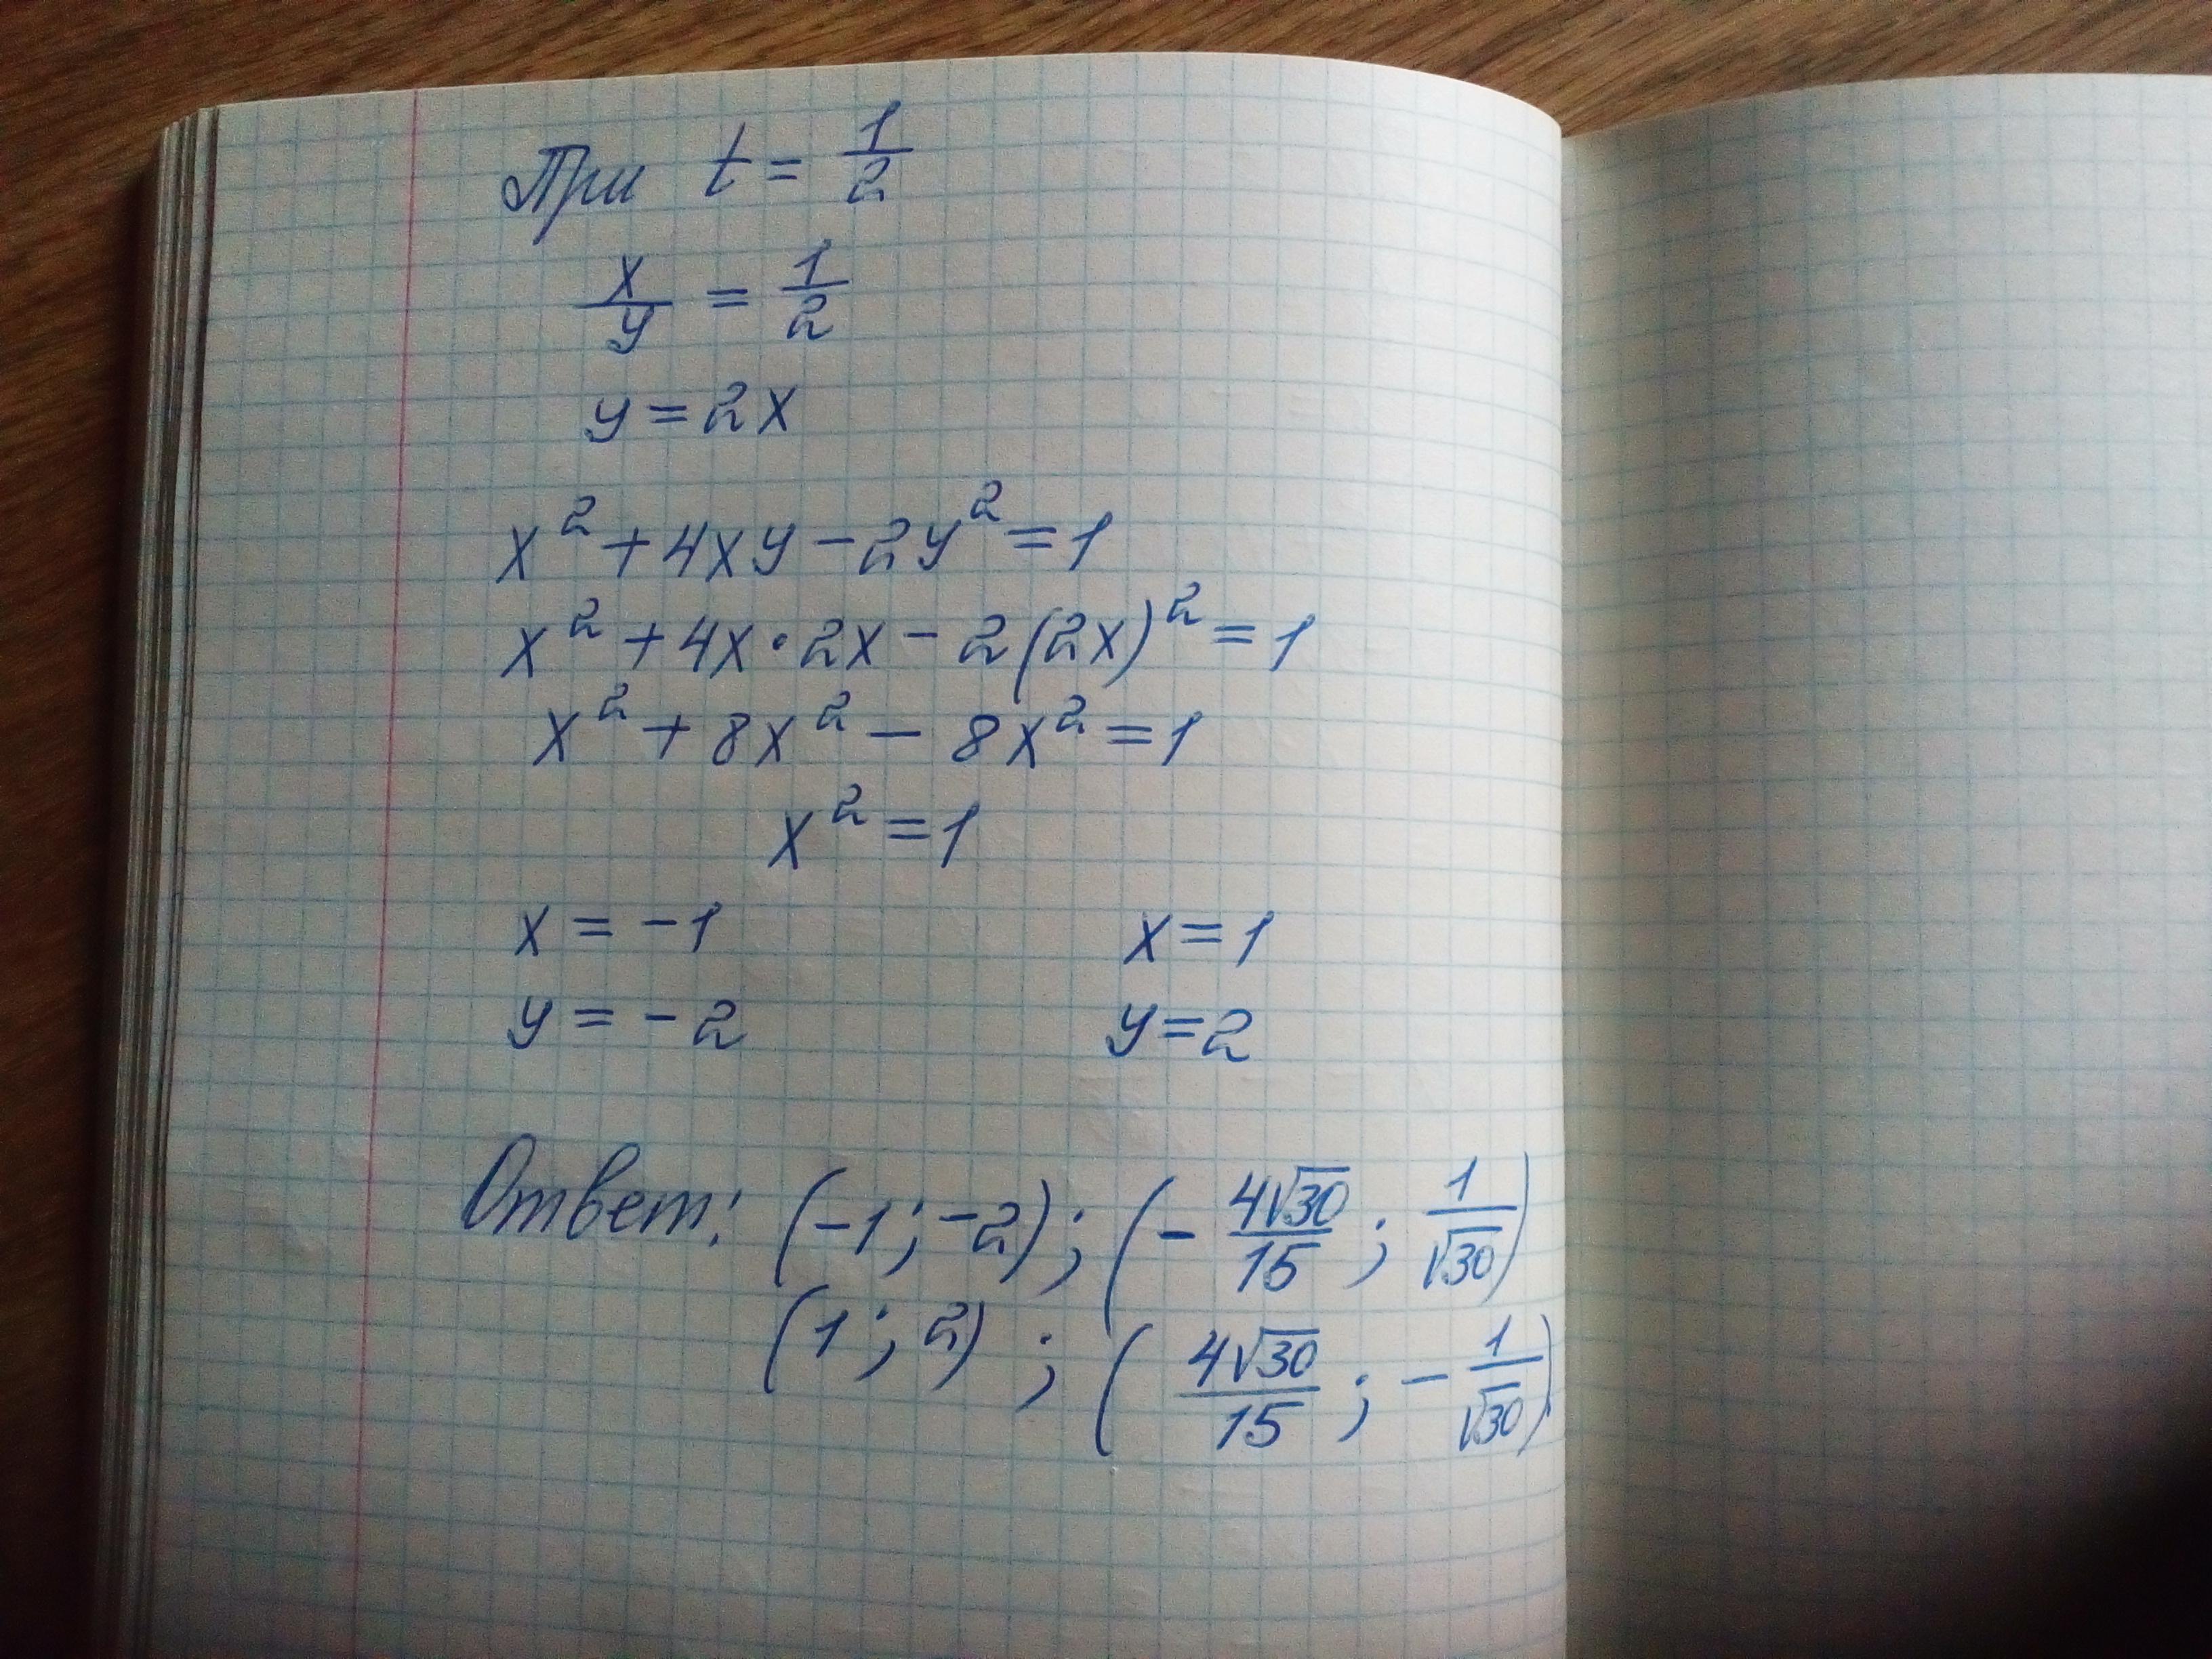 При t = 1/2
x/y = 1/2
y = 2x
x² + 4xy − 2y² = 1
x² + 4x · 2x − 2(2x)² = 1
x² + 8x² − 8x² = 1
x² = 1
x = −1 x = 1
y = −2 y = 2
Ответ: (−1; −2); (− 4√30/15; 1/√30)
(1; 2); (4√30/15; − 1/√30)